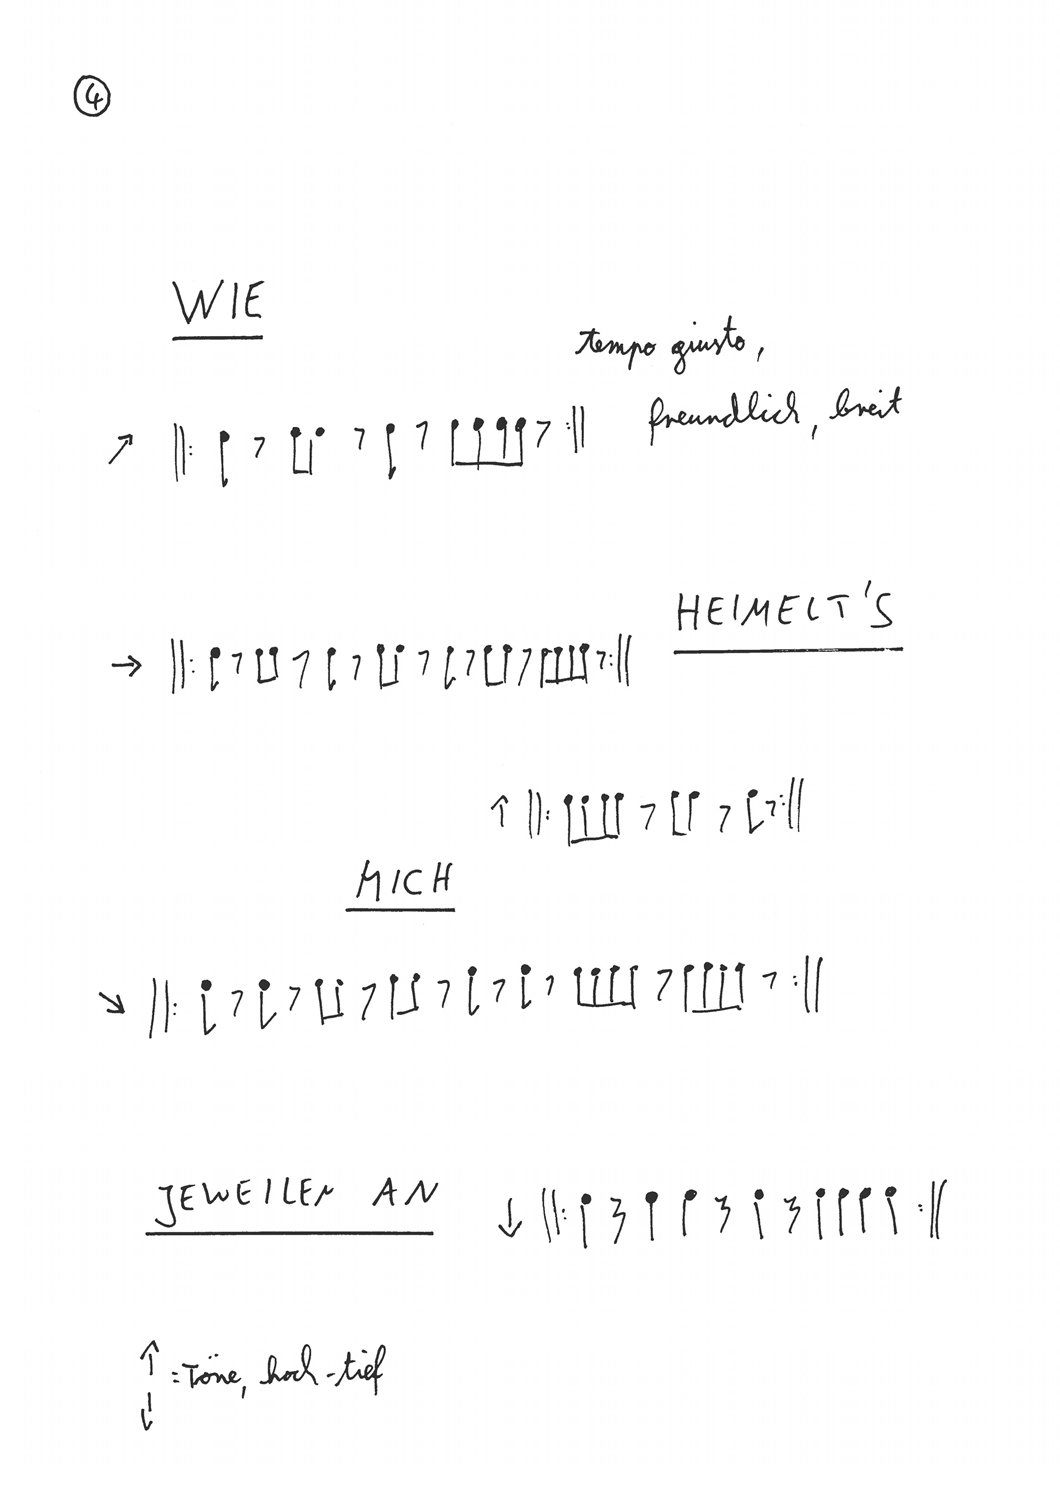 4
WIE
tempo giusto,
freundlich, breit
HEIMELT'S
MICH
JEWEILEN AN
↑
↓ = Töne, hoch-tief